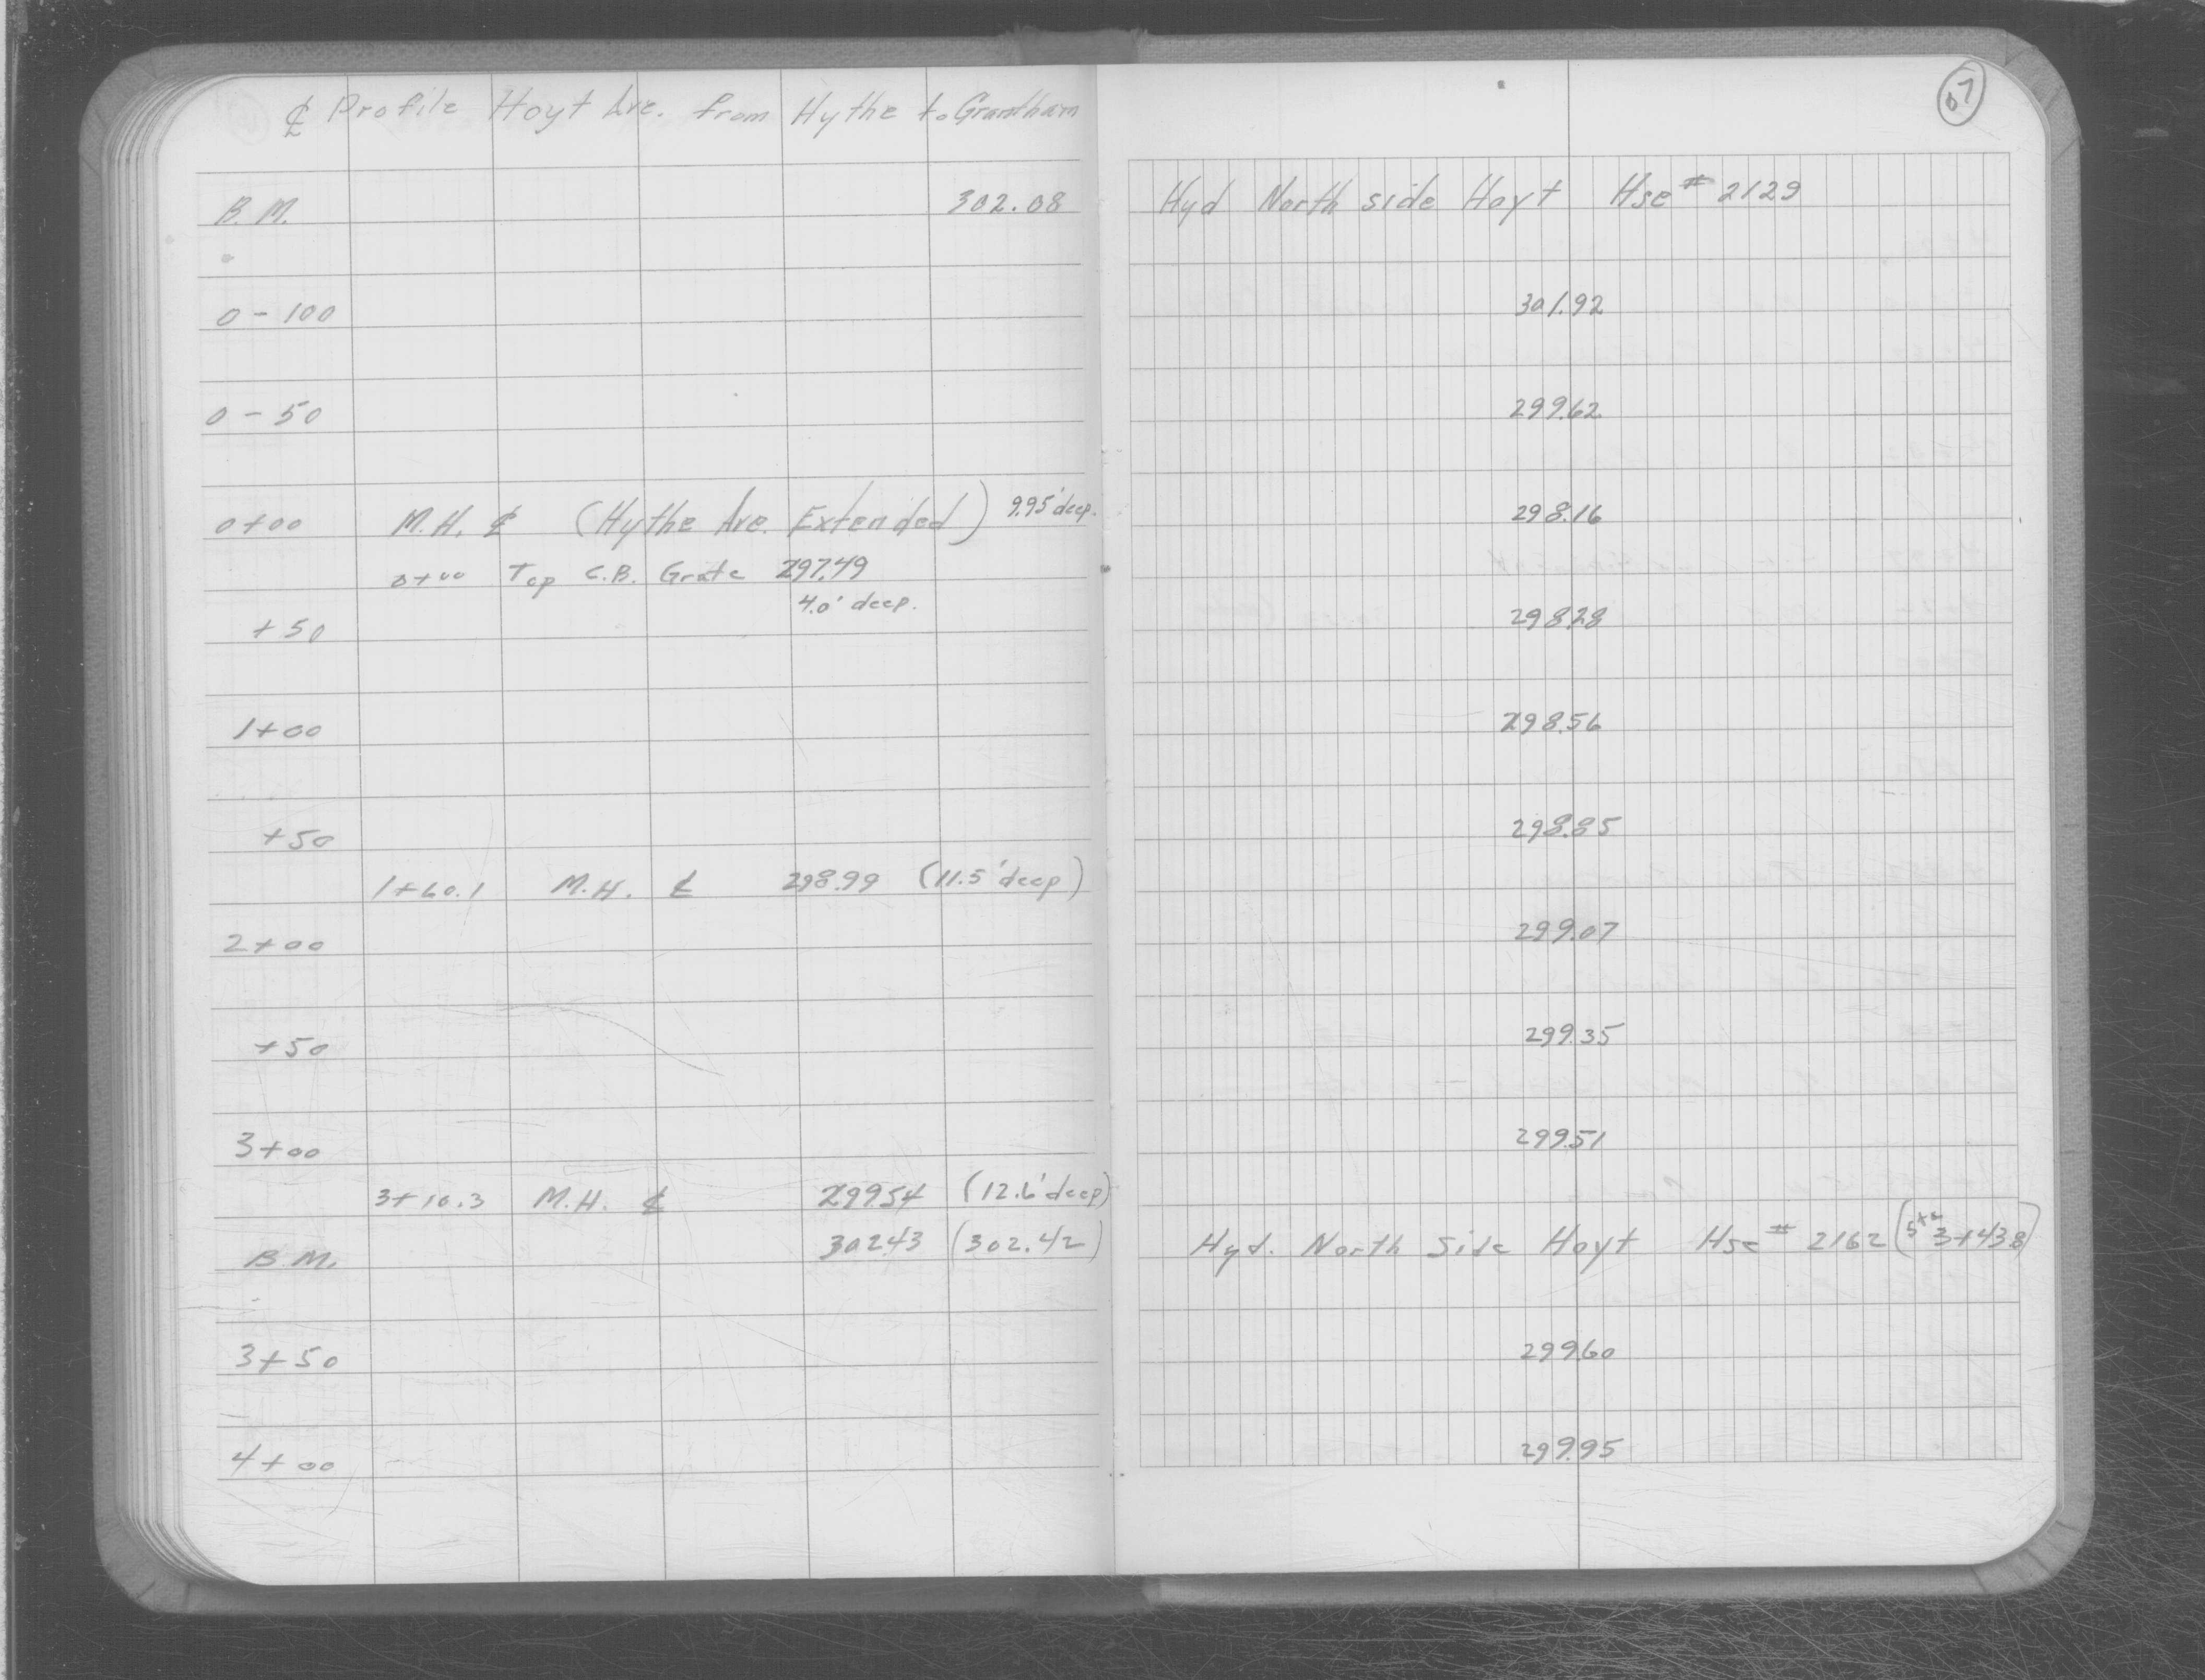 ℄ Profile Hoyt Ave. from Hythe to Grantham
67
B.M. 302.08 Hyd North side Hoyt Hse # 2129
0-100 301.92
0-50 299.62
0+00 M.H. ℄ (Hythe Ave. Extended) 9.95' deep. 298.16
0+00 Top C.B. Grate 297.49
4.0' deep.
+50 298.28
1+00 298.56
+50 298.85
1+60.1 M.H. ℄ 298.99 (11.5' deep)
2+00 299.07
+50 299.35
3+00 299.51
3+10.3 M.H. ℄ 299.54 (12.6' deep)
B.M. 302.43 (302.42) Hyd. North Side Hoyt Hse # 2162 (Sta 3+43.8)
3+50 299.60
4+00 299.95